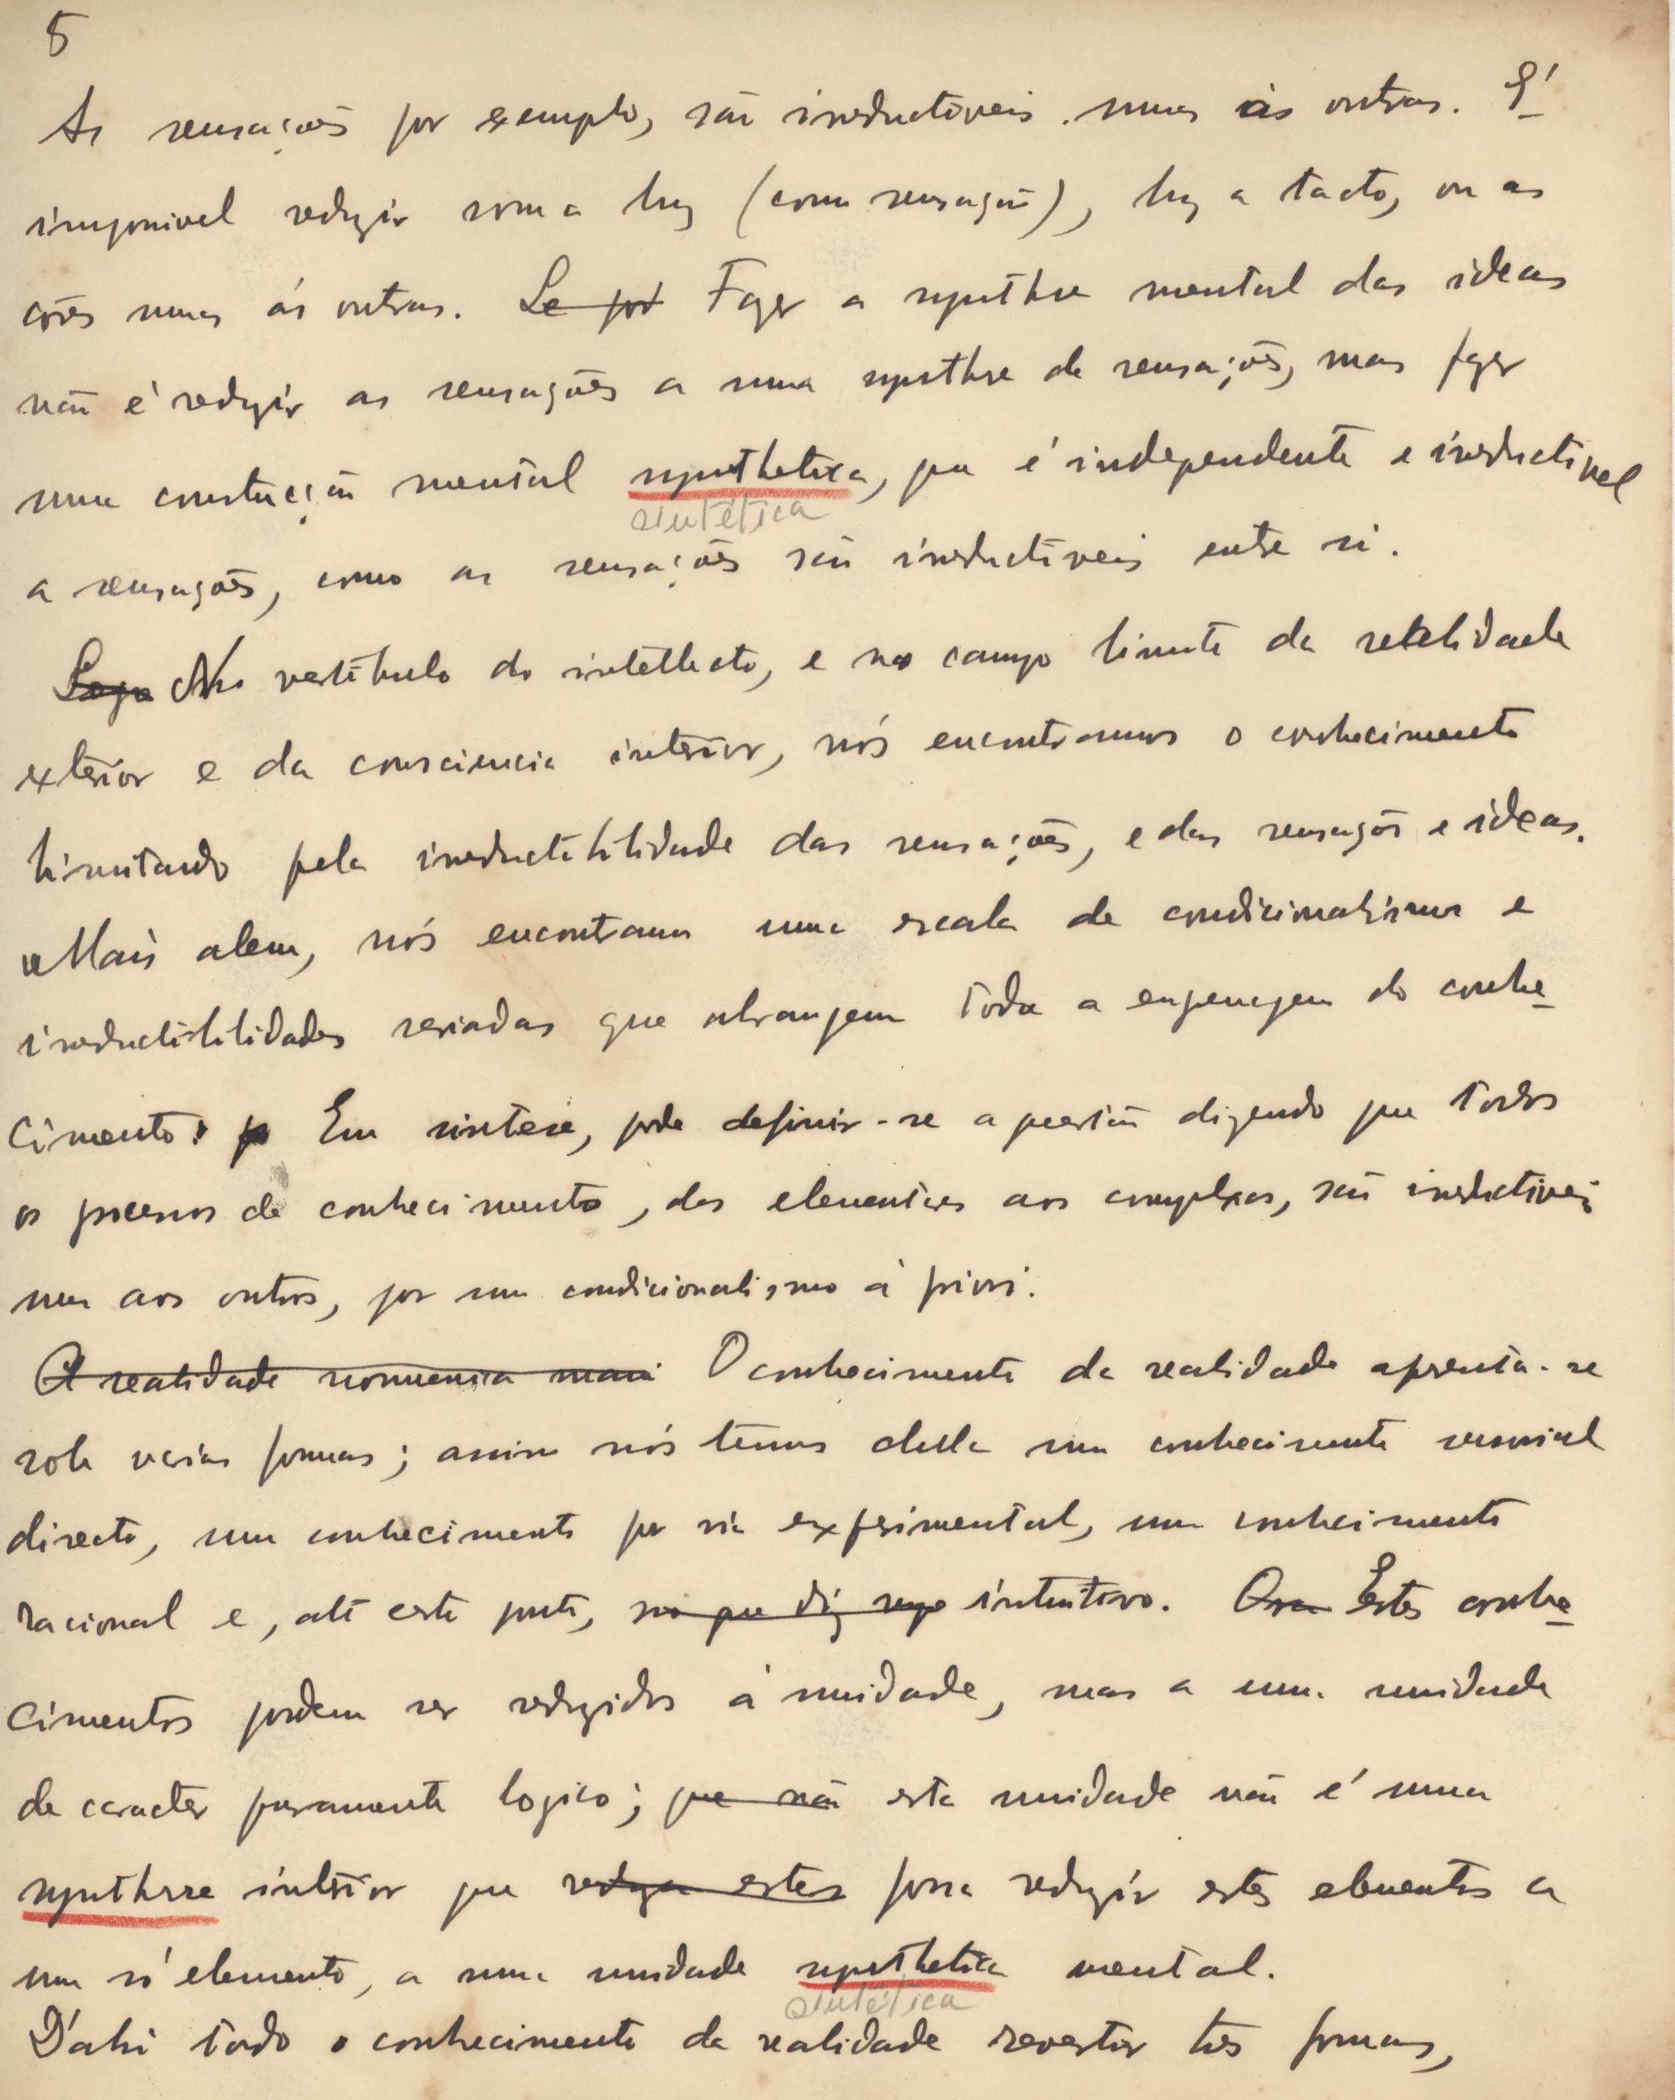 5
As sensações por exemplo, são irreductiveis umas ás outras. É
impossivel reduzir som a luz (como sensação), luz a tacto, ou as
côres umas ás outras. Se por Fazer a synthese mental das ideas
não é reduzir as sensações a uma synthese de sensações, mas fazer
uma construcção mental synthetica, que é independente e irreductivel
sintética
a sensações, como as sensações são irreductiveis entre si.
Logo No vestibulo do intellecto, e no campo limite da realidade
exterior e da consciencia interior, nós encontramos o conhecimento
limitando pela irreductibilidade das sensações, e das sensações e ideas.
Mais alem, nós encontramos uma escala de condicionalismos e
irreductibilidades seriadas que abrangem toda a engrenagem do conhe-
cimento. Em sintese, pode definir-se a questão dizendo que todos
os processos de conhecimento, dos elementares aos complexos, são irreductiveis
uns aos outros, por um condicionalismo á priori.
A realidade mais O conhecimento da realidade apresenta-se
sob varias formas; assim nós temos della um conhecimento sensorial
directo, um conhecimento por via experimental, um conhecimento
racional e, até certo ponto, no que diz resp intuitivo. Ora Estes conhe-
cimentos podem ser reduzidos á unidade, mas a uma unidade
de caracter puramente logico; que não esta unidade não é uma
synthese interior que reduza estes possa reduzir estes elementos a
um só elemento, a uma unidade synthetica mental.
sintética
D'ahi todo o conhecimento da realidade revestir tres formas,